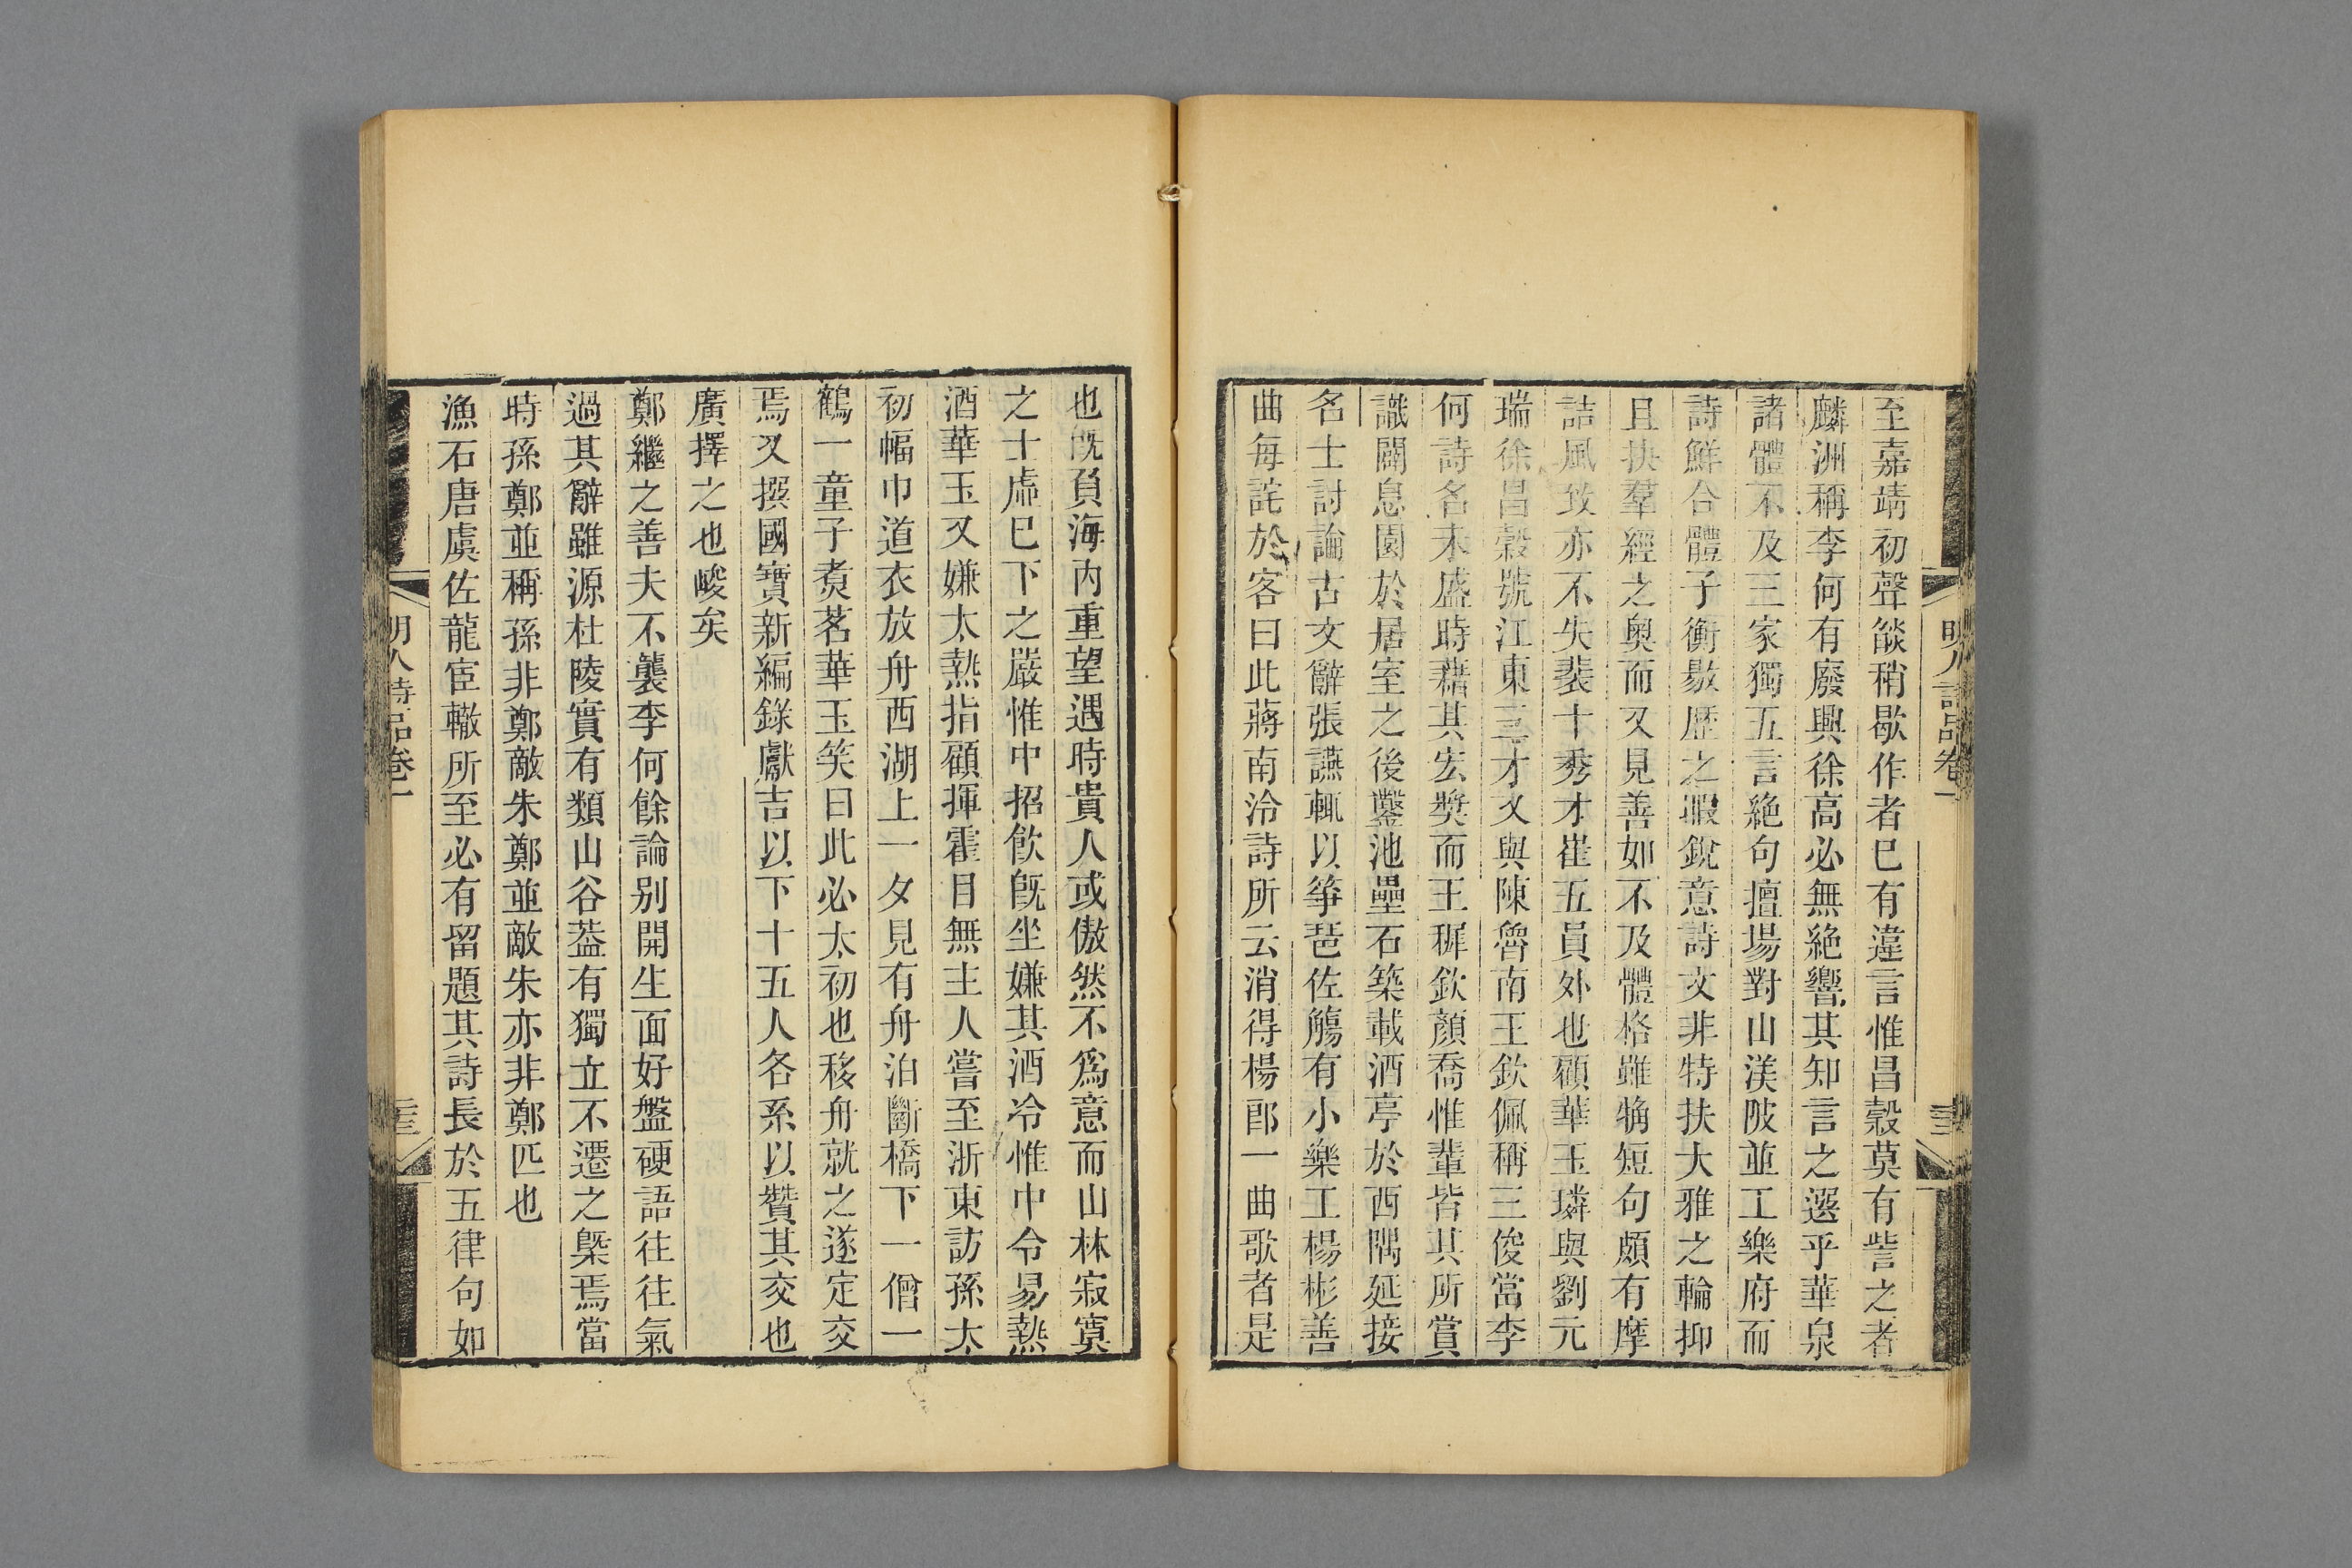 明人詩品卷一
至嘉靖初聲燄稍歇作者已有違言惟昌穀莫有訾之者
麟洲稱李何有廢興徐高必無絕響其知言之選乎華泉
諸體不及三家獨五言絕句擅場對山渼陂並工樂府而
詩鮮合體子衡敭歷之暇銳意詩文非特扶大雅之輪抑
且抉羣經之奧而又見善如不及體格雖觕短句頗有摩
詰風致亦不失裴十秀才崔五員外也顧華玉璘與劉元
瑞徐昌穀號江東三才又與陳魯南王欽佩稱三俊當李
何詩名未盛時藉其宏獎而王穉欽顏喬惟輩皆其所賞
識闢息園於居室之後鑿池壘石築載酒亭於西隅延接
名士討論古文辭張讌輒以箏琶佐觴有小樂工楊彬善
曲每詫於客曰此蔣南泠詩所云消得楊郎一曲歌者是
也旣負海內重望遇時貴人或傲然不爲意而山林寂寞
之士虛已下之嚴惟中招飮旣坐嫌其酒冷惟中令易熱
酒華玉又嫌太熱指顧揮霍目無主人嘗至浙東訪孫太
初幅巾道衣放舟西湖上一夕見有舟泊斷橋下一僧一
鶴一童子煑茗華玉笑曰此必太初也移舟就之遂定交
焉又撰國寶新編錄獻吉以下十五人各系以贊其交也
廣擇之也峻矣
鄭繼之善夫不襲李何餘論别開生面好盤硬語往往氣
過其辭雖源杜陵實有類山谷葢有獨立不遷之槩焉當
時孫鄭並稱孫非鄭敵朱鄭並敵朱亦非鄭匹也
漁石唐虞佐龍宦轍所至必有留題其詩長於五律句如
明人詩品卷一